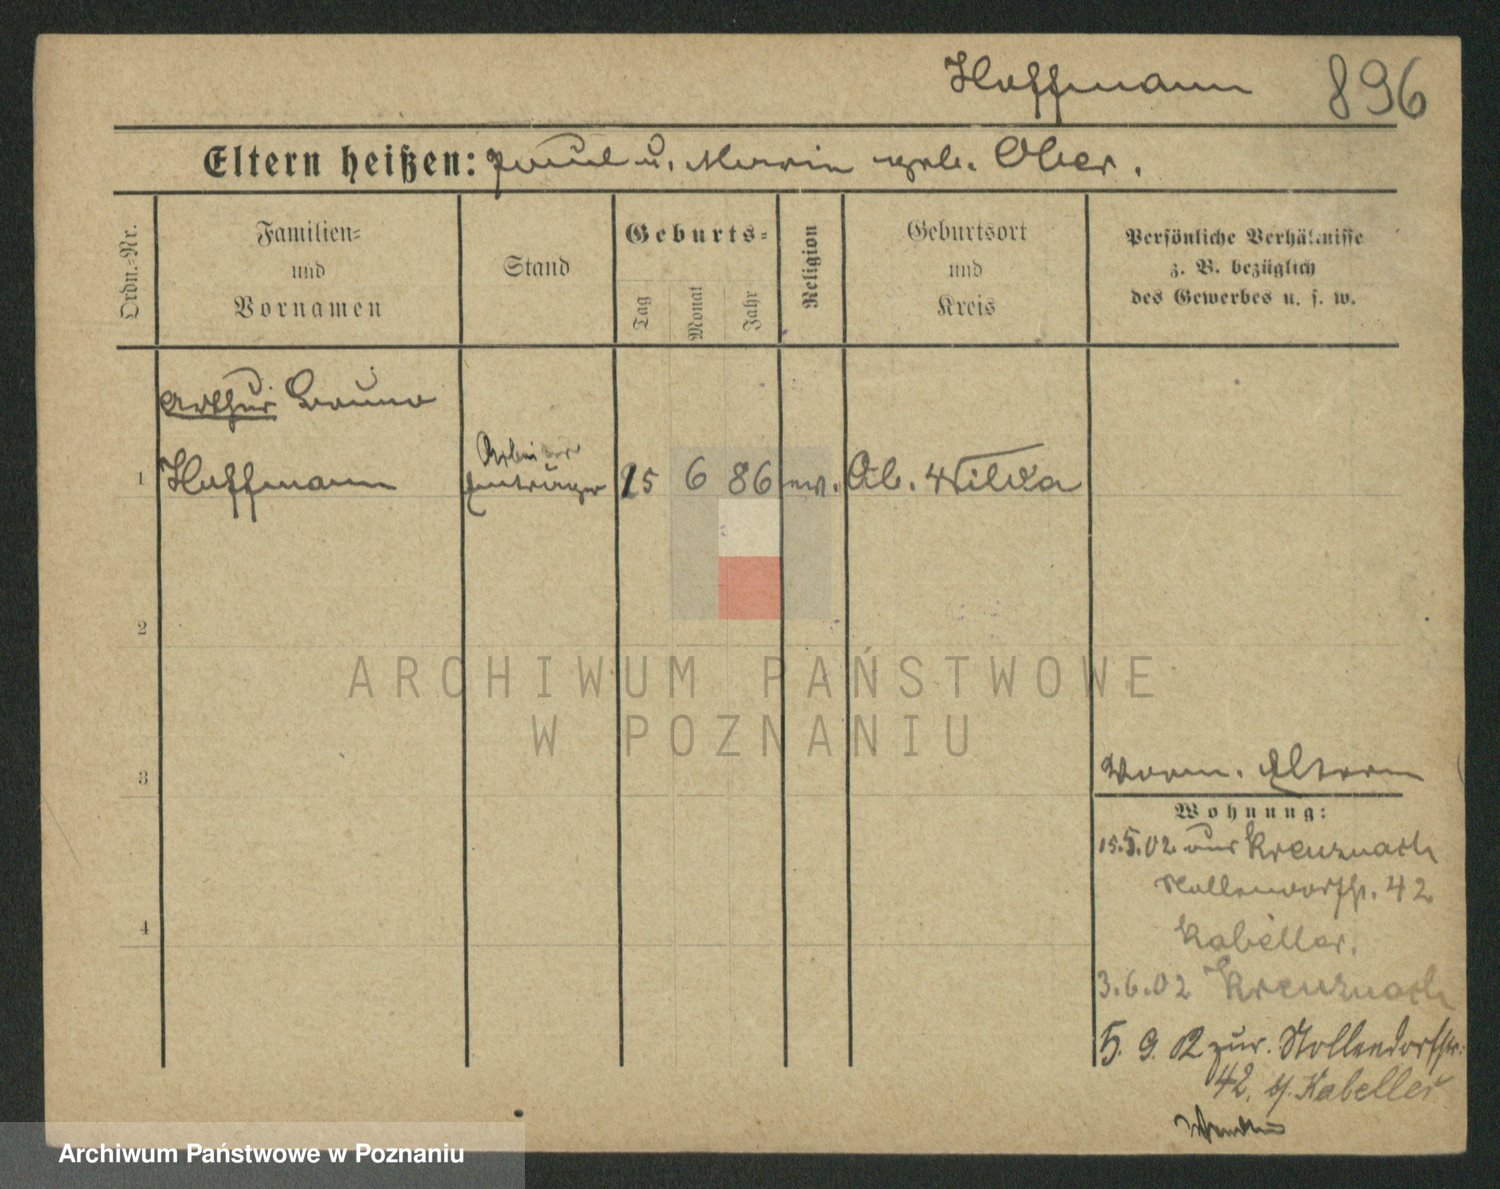 Hoffmann 896
Eltern heißen: Paul u. Maria geb. Ober.
Ordn.-Nr.
Familien-
und
Vornamen
Stand
Geburts-
Tag
Monat
Jahr
Religion
Geburtsort
und
Kreis
Persönliche Verhältnisse
z. B. bezüglich
des Gewerbes u. s. w.
Arthur Bruno
Arbeiter
1 Hoffmann 15 6 86 ev. Ob. Wilda
2
3
4
ARCHIWUM PAŃSTWOWE
W POZNANIU
Eltern
Wohnung:
15.5.02 aus Kreuznach
Nollendorfstr. 42
Kabeller.
3.6.02 Kreuznach
5. 9. 02 zur. Nollendorfstr.
42. b/. Kabeller
Wenden
Archiwum Państwowe w Poznaniu